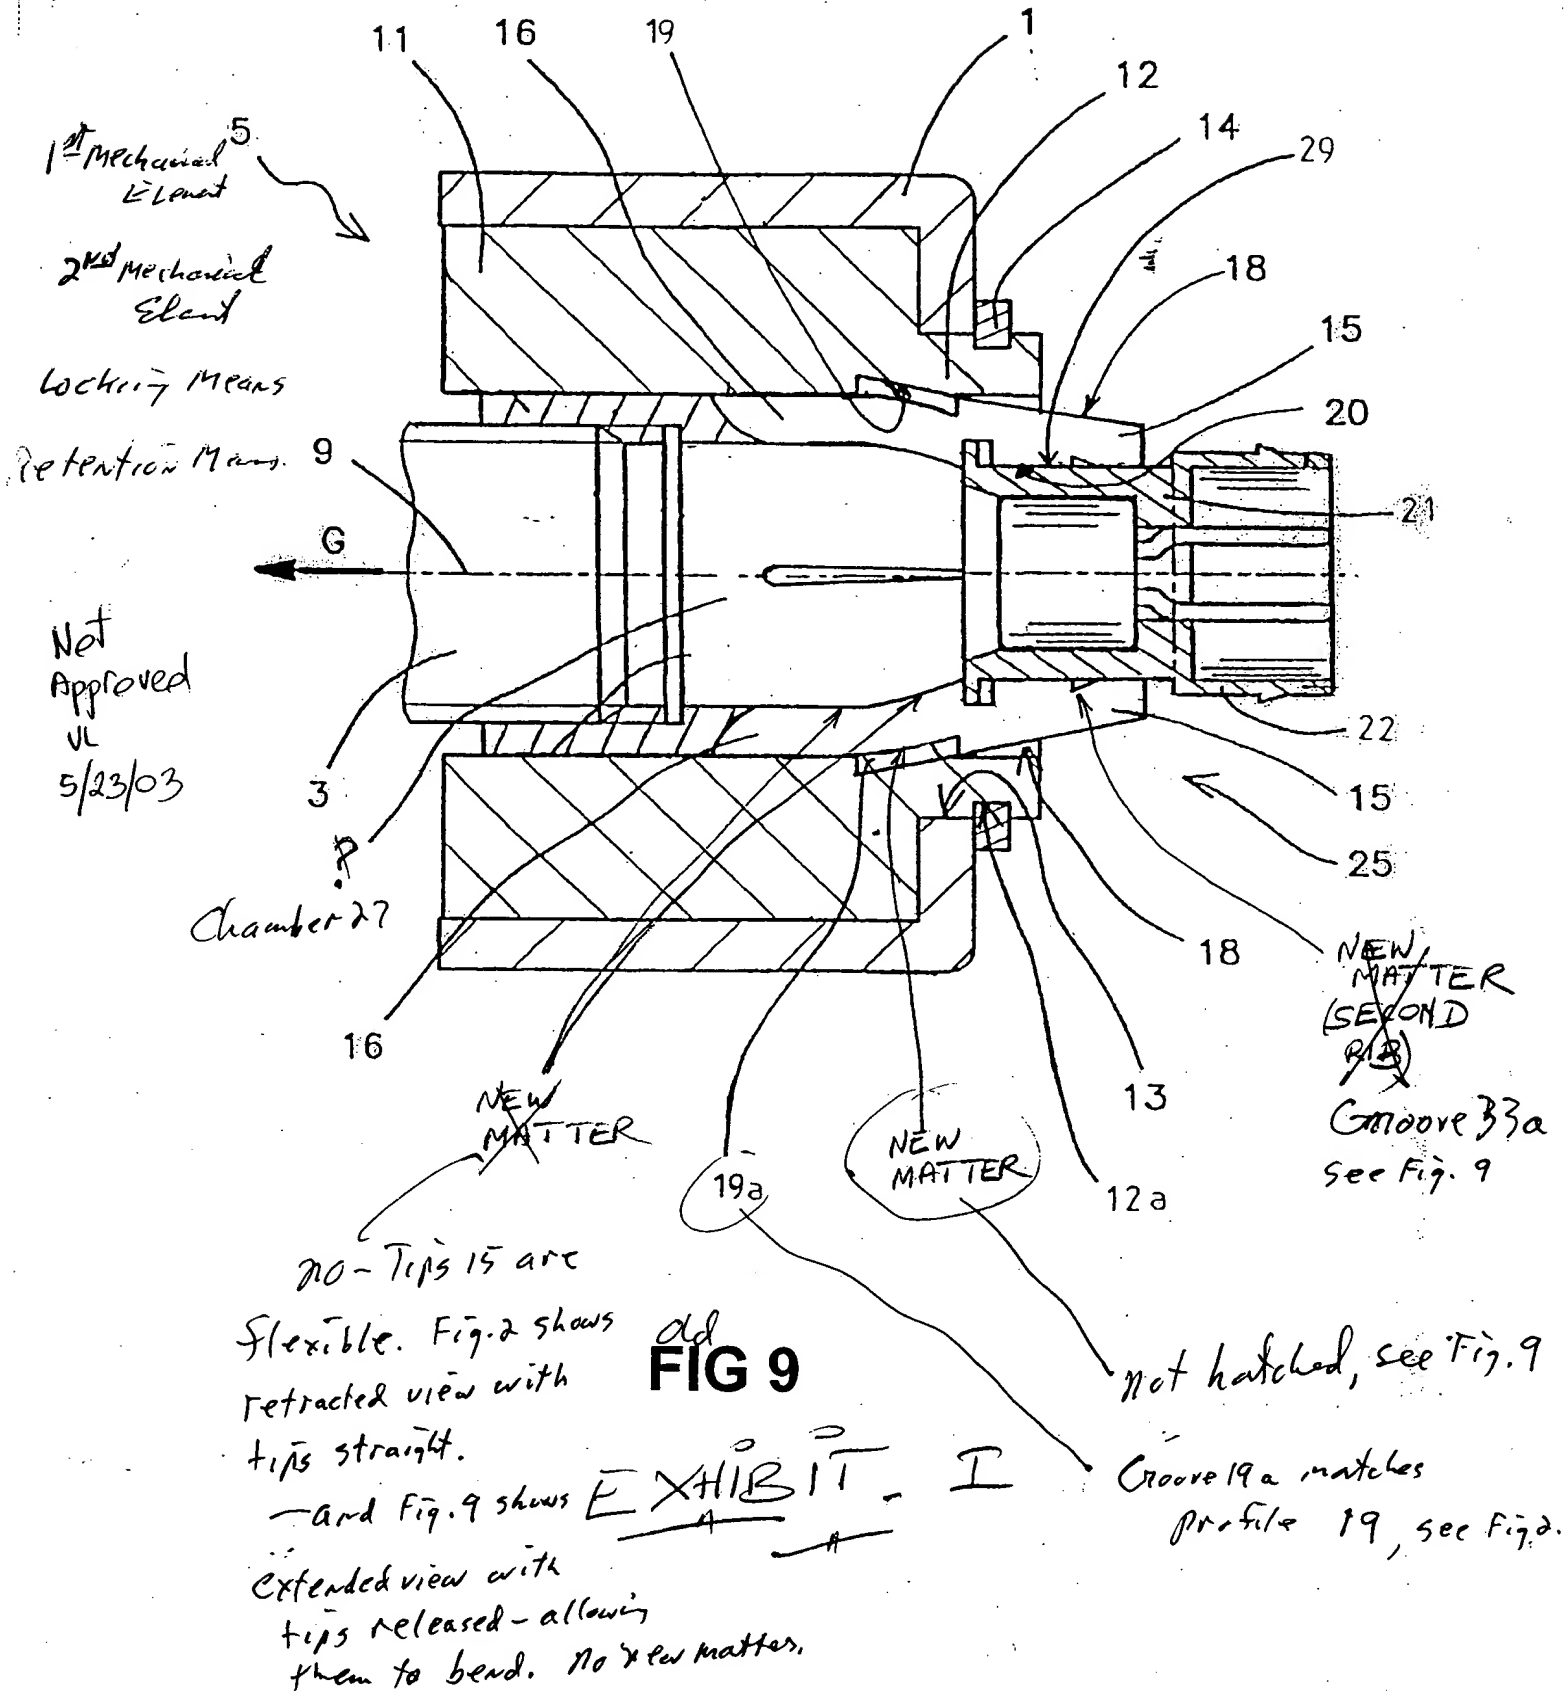 11
16
19
1
12
14
29
18
15
20
21
22
15
25
18
13
12a
19a
16
3
9
G
5
1st Mechanical
Element
2nd Mechanical
Elant
Locking Means
Retention Means.
Not
Approved
VL
5/23/03
?
Chamber 27
NEW
MATTER
NEW
MATTER
NEW
MATTER
(SECOND
RIB)
Groove 33a
see Fig. 9
no - Tips 15 are
flexible. Fig. 2 shows
retracted view with
tips straight.
- and Fig. 9 shows
extended view with
tips released - allowing
them to bend. No new matter.
old
FIG 9
EXHIBIT. I
not hatched, see Fig. 9
Groove 19a matches
profile 19, see Fig 2.